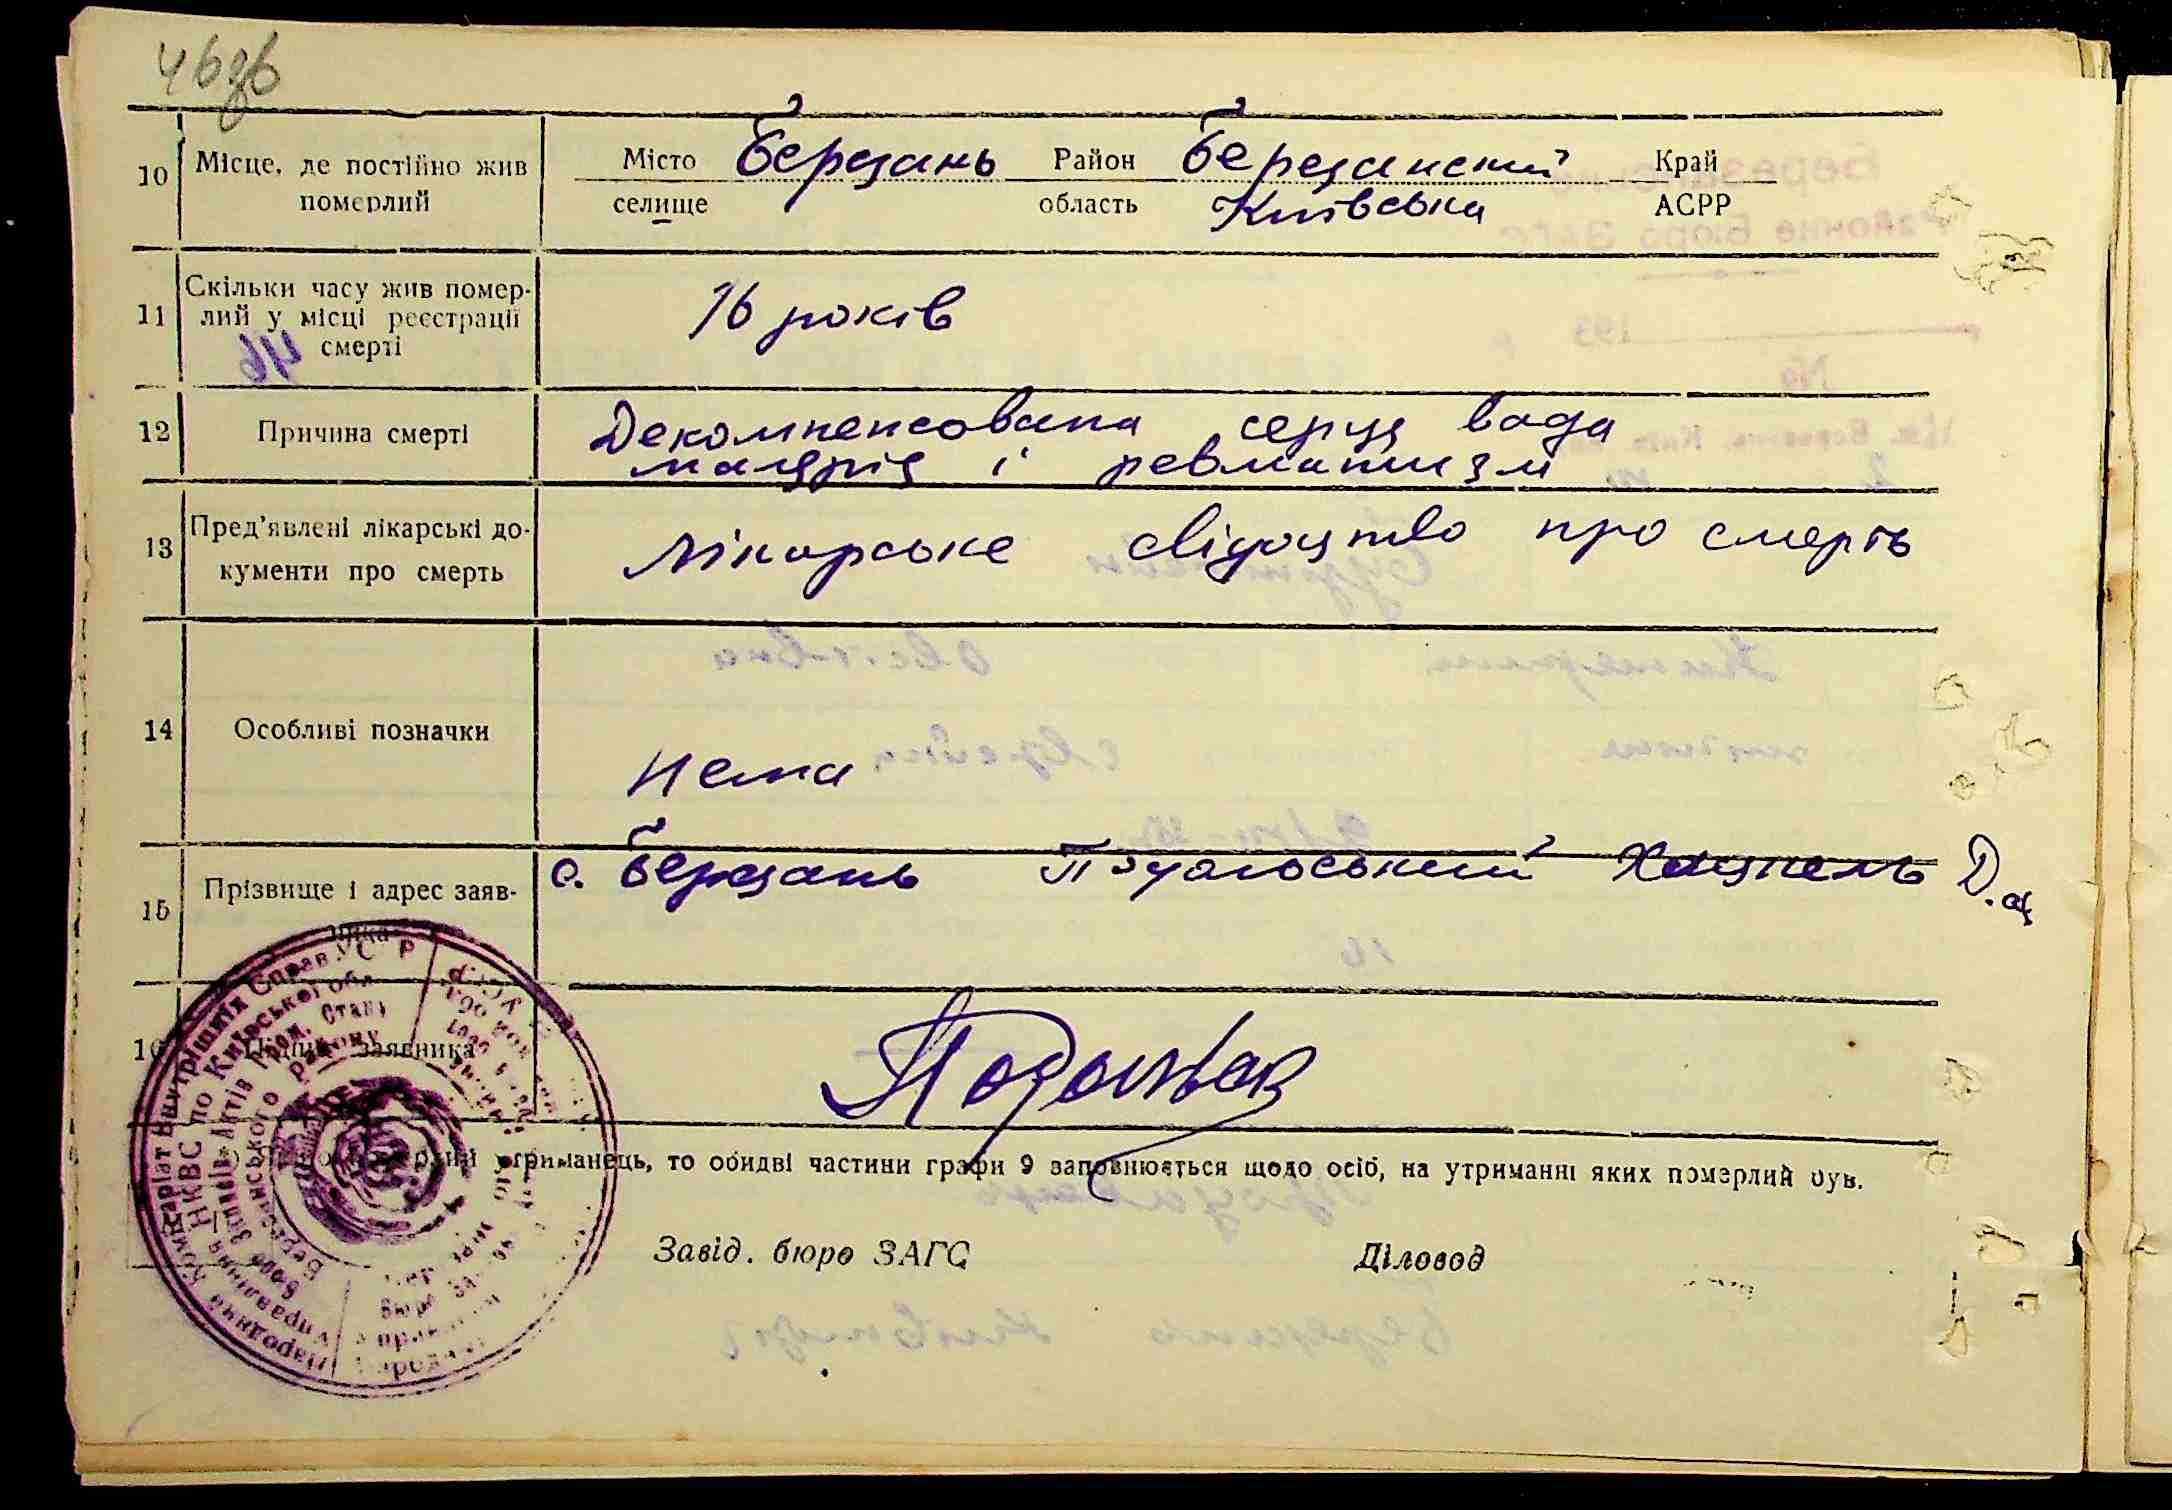 46зв
10 Місце, де постійно жив померлий Місто селище Березань Район Березанский Край
область Київська АСРР
11 Скільки часу жив помер-
лий у місці реєстрації
смерті 16 років
46
12 Причина смерті Декомпенсована серця вада
малярія і ревматизм
13 Пред'явлені лікарські до-
кументи про смерть лікарське свідоцтво про смерть
14 Особливі позначки Нема
15 Прізвище і адрес заяв-
ника с. Березань Подольський
16 Підпис заявника
утриманець, то обидві частини графи 9 заповнюється щодо осіб, на утриманні яких померлий був.
Завід. бюро ЗАГС Діловод
Народний Комісаріат Внутрішніх Справ УСРР
Управління НКВС по Київській обл.
Бюро Записів Актів Гром. Стану
Березанського району